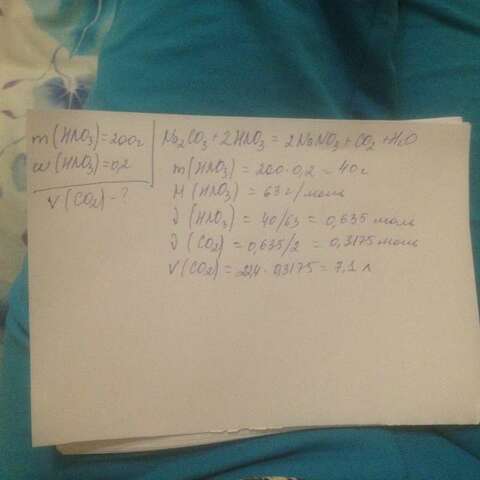 m(HNO₃)=200г
w(HNO₃)=0,2
V(CO₂)-?
Na₂CO₃+2HNO₃=2NaNO₃+CO₂+H₂O
m(HNO₃)=200·0,2=40г
M(HNO₃)=63г/моль
ν(HNO₃)=40/63=0,635 моль
ν(CO₂)=0,635/2=0,3175 моль
V(CO₂)=22,4·0,3175=7,1 л